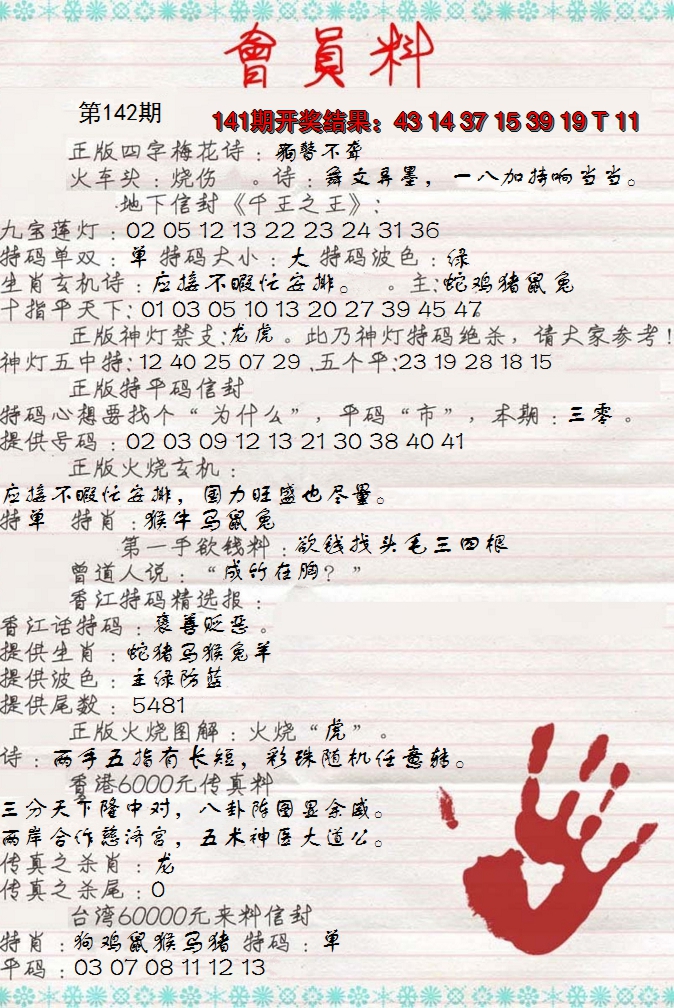 會員料
第142期
141期开奖结果：43 14 37 15 39 19 T 11
正版四字梅花诗：痴聋不聋
火车头：烧伤 。诗：舞文弄墨，一八加持响当当。
地下信封《千王之王》：
九宝莲灯：02 05 12 13 22 23 24 31 36
特码单双：单 特码大小：大 特码波色：绿
生肖玄机诗：应接不暇忙安排。 。主：蛇鸡猪鼠兔
十指平天下：01 03 05 10 13 20 27 39 45 47
正版神灯禁支：龙虎。此乃神灯特码绝杀，请大家参考！
神灯五中特：12 40 25 07 29 .五个平：23 19 28 18 15
正版特平码信封
特码心想要找个“为什么”，平码“市”，本期：三零。
提供号码：02 03 09 12 13 21 30 38 40 41
正版火烧玄机：
应接不暇忙安排，国力旺盛也尽量。
特单 特肖：猴牛马鼠兔
第一手欲钱料：欲钱找头毛三四根
曾道人说：“成竹在胸？”
香江特码精选报：
香江话特码：褒善贬恶。
提供生肖：蛇猪马猴兔羊
提供波色：主绿防蓝
提供尾数：5481
正版火烧图解：火烧“虎”。
诗：两手五指有长短，彩珠随机任意转。
香港6000元传真料
三分天下隆中对，八卦阵图显余威。
两岸合作慈济宫，五术神医大道公。
传真之杀肖：龙
传真之杀尾：0
台湾60000元来料信封
特肖：狗鸡鼠猴马猪 特码：单
平码：03 07 08 11 12 13